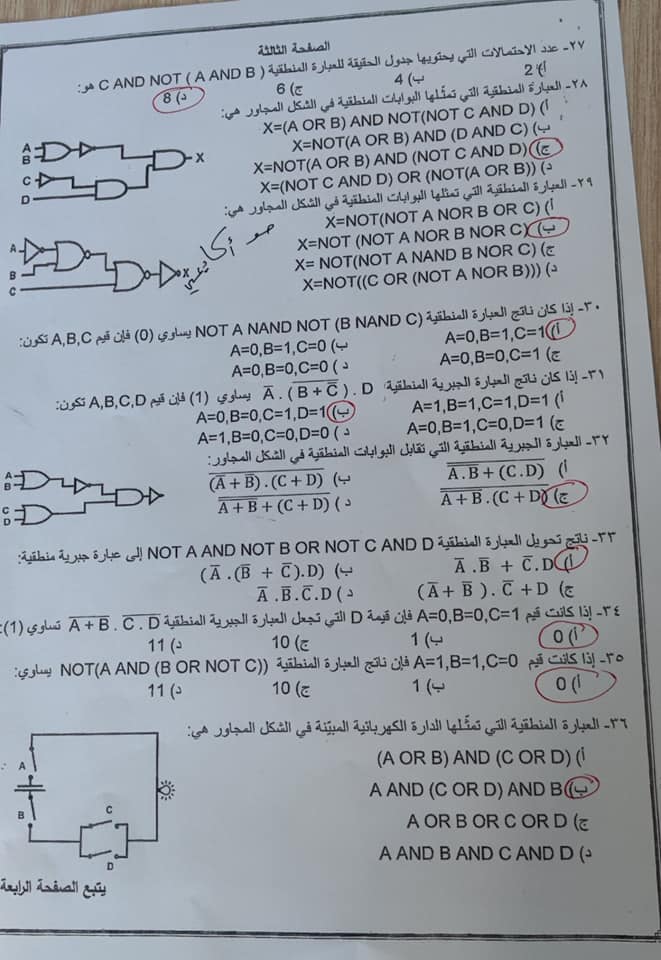 الصفحة الثالثة
٢٧- عدد الاحتمالات التي يحتويها جدول الحقيقة للعبارة المنطقية C AND NOT ( A AND B ) هو:
أ) 2 ب) 4 ج) 6 د) 8
٢٨- العبارة المنطقية التي تمثلها البوابات المنطقية في الشكل المجاور هي:
أ) X=(A OR B) AND NOT(NOT C AND D)
ب) X=NOT(A OR B) AND (D AND C)
ج) X=NOT(A OR B) AND (NOT C AND D)
د) X=(NOT C AND D) OR (NOT(A OR B))
A
B
C
D
X
٢٩- العبارة المنطقية التي تمثلها البوابات المنطقية في الشكل المجاور هي:
أ) X=NOT(NOT A NOR B OR C)
ب) X=NOT (NOT A NOR B NOR C)
ج) X= NOT(NOT A NAND B NOR C)
د) X=NOT((C OR (NOT A NOR B)))
A
B
C
X
٣٠- إذا كان ناتج العبارة المنطقية NOT A NAND NOT (B NAND C) يساوي (0) فإن قيم A,B,C تكون:
أ) A=0,B=1,C=1 ب) A=0,B=1,C=0
ج) A=0,B=0,C=1 د) A=0,B=0,C=0
٣١- إذا كان ناتج العبارة الجبرية المنطقية A̅ . (B + C̅)̅ . D يساوي (1) فإن قيم A,B,C,D تكون:
أ) A=1,B=1,C=1,D=1 ب) A=0,B=0,C=1,D=1
ج) A=0,B=1,C=0,D=1 د) A=1,B=0,C=0,D=0
٣٢- العبارة الجبرية المنطقية التي تقابل البوابات المنطقية في الشكل المجاور:
أ) A . B + (C . D) ب) (A + B) . (C + D)
ج) A + B . (C + D) د) A + B + (C + D)
A
B
C
D
٣٣- ناتج تحويل العبارة المنطقية NOT A AND NOT B OR NOT C AND D إلى عبارة جبرية منطقية:
أ) A̅ . B̅ + C̅ . D ب) (A̅ .(B̅ + C̅).D)
ج) (A̅ + B̅ ). C̅ + D د) A̅ .B̅.C̅.D
٣٤- إذا كانت قيم A=0,B=0,C=1 فإن قيمة D التي تجعل العبارة الجبرية المنطقية A + B . C . D تساوي (1):
أ) 0 ب) 1 ج) 10 د) 11
٣٥- إذا كانت قيم A=1,B=1,C=0 فإن ناتج العبارة المنطقية NOT(A AND (B OR NOT C)) يساوي:
أ) 0 ب) 1 ج) 10 د) 11
٣٦- العبارة المنطقية التي تمثلها الدارة الكهربائية المبيّنة في الشكل المجاور هي:
أ) (A OR B) AND (C OR D)
ب) A AND (C OR D) AND B
ج) A OR B OR C OR D
د) A AND B AND C AND D
A
B
C
D
يتبع الصفحة الرابعة